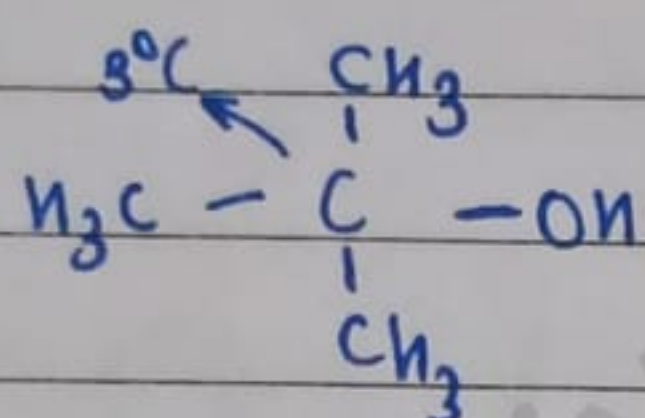 3°C CH3
H3C - C - OH
CH3